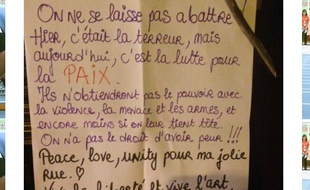 ON NE SE LAISSE PAS ABATTRE
HIER, C'ÉTAIT LA TERREUR, MAIS
AUJOURD'HUI, C'EST LA LUTTE POUR
LA PAIX.
ILS N'OBTIENDRONT PAS LE POUVOIR AVEC
LA VIOLENCE, LA MENACE ET LES ARMES, ET
ENCORE MOINS SI ON LEUR TIENT TÊTE.
ON N'A PAS LE DROIT D'AVOIR PEUR !!!
Peace, love, unity pour ma jolie
rue. ♡
la liberté et vive l'art.